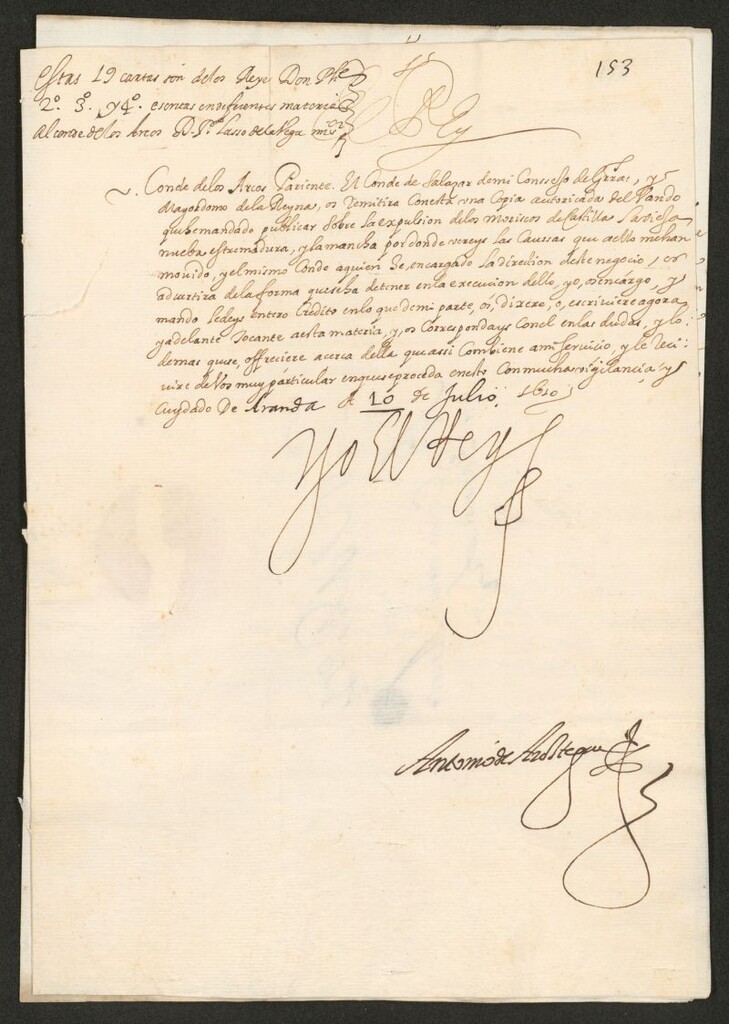 153
Estas 19 cartas son de los Reyes Don Phe
2º. 3º. y 4º. escritas en diferentes materias
al conde de los Arcos D. Pº. Lasso de la Vega mi sor
El Rey
Conde de los Arcos Pariente. El Conde de Salazar de mi Conssejo de Grra, y
Mayordomo de la Reyna, os Remitira Con esta una Copia autoricada del Vando
que he mandado publicar sobre la expulsion de los moriscos de Castilla la vieja
nueba estremadura, y la mancha por donde vereys las Caussas que a ello me han
mouido, y el mismo Conde a quien he, encargado la direction deste negocio, os
aduertira de la forma que se ha de tener en la execucion dello, yo, os encargo, y
mando le deys entero Credito en lo que de mi parte, os, dixere, o, escriuiere agora
y adelante tocante a esta materia, y, os Correspondays Con el en las dudas, y lo
demas que se, offreciere acerca della que assi Combiene a mi seruicio, y le Reci-
uire de Vos muy particular en que se proceda en esto Con mucha vigilancia, y
Cuydado De Aranda A 10 de Julio, 1610
Yo El Rey
Antonio de Arostegui